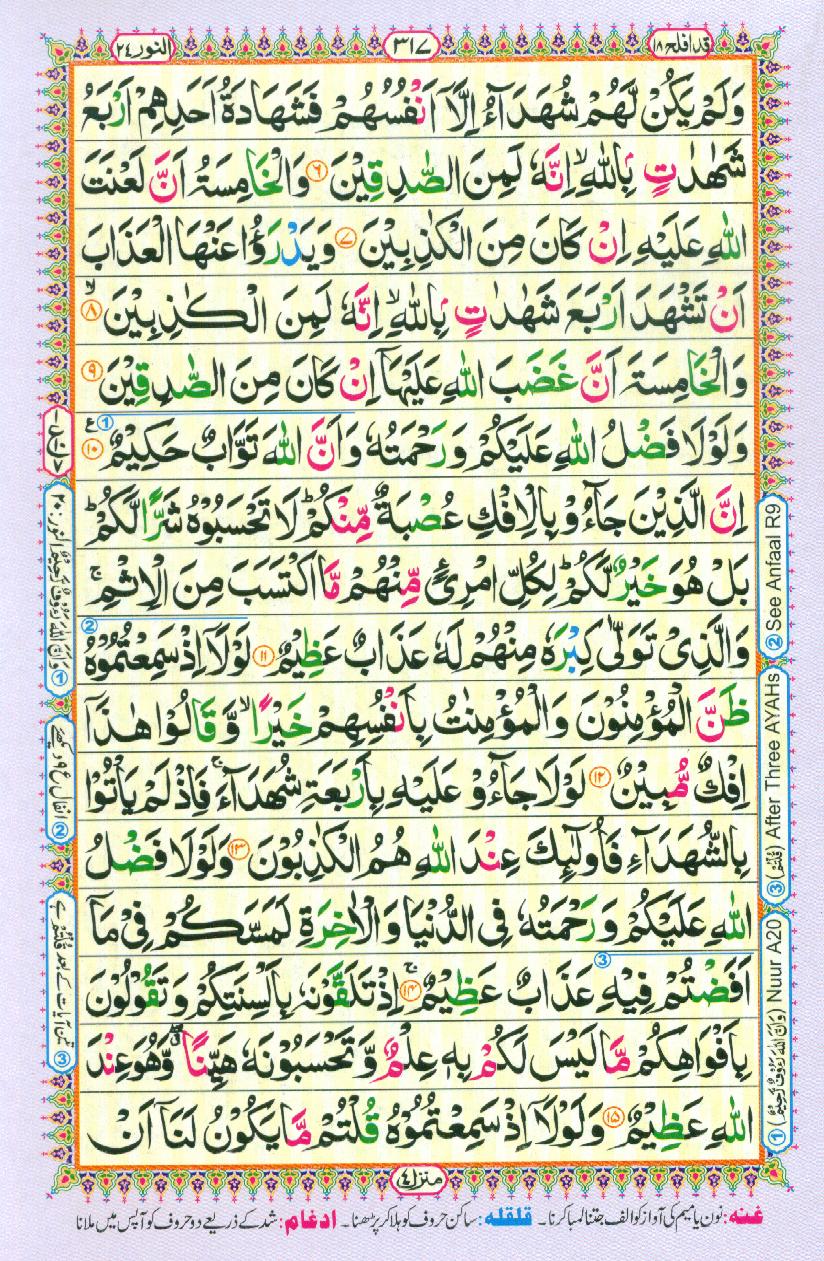 قد افلح ١٨
٣١٧
النور ٢٤
وَلَمْ يَكُنْ لَّهُمْ شُهَدَآءُ اِلَّاۤ اَنْفُسُهُمْ فَشَهَادَةُ اَحَدِهِمْ اَرْبَعُ
شَهٰدٰتٍۭ بِاللّٰهِ ۙ اِنَّهٗ لَمِنَ الصّٰدِقِيْنَ ٦ وَالْخَامِسَةُ اَنَّ لَعْنَتَ
اللّٰهِ عَلَيْهِ اِنْ كَانَ مِنَ الْكٰذِبِيْنَ ٧ وَيَدْرَؤُا عَنْهَا الْعَذَابَ
اَنْ تَشْهَدَ اَرْبَعَ شَهٰدٰتٍۭ بِاللّٰهِ ۙ اِنَّهٗ لَمِنَ الْكٰذِبِيْنَ ۙ ٨
وَالْخَامِسَةَ اَنَّ غَضَبَ اللّٰهِ عَلَيْهَاۤ اِنْ كَانَ مِنَ الصّٰدِقِيْنَ ٩
وَلَوْلَا فَضْلُ اللّٰهِ عَلَيْكُمْ وَرَحْمَتُهٗ وَاَنَّ اللّٰهَ تَوَّابٌ حَكِيْمٌ ١٠ ع ①
اِنَّ الَّذِيْنَ جَآءُوْ بِالْاِفْكِ عُصْبَةٌ مِّنْكُمْ ؕ لَا تَحْسَبُوْهُ شَرًّا لَّكُمْ ؕ
بَلْ هُوَ خَيْرٌ لَّكُمْ ؕ لِكُلِّ امْرِئٍ مِّنْهُمْ مَّا اكْتَسَبَ مِنَ الْاِثْمِ ۚ
وَالَّذِيْ تَوَلّٰى كِبْرَهٗ مِنْهُمْ لَهٗ عَذَابٌ عَظِيْمٌ ١١ لَوْلَاۤ اِذْ سَمِعْتُمُوْهُ ②
ظَنَّ الْمُؤْمِنُوْنَ وَالْمُؤْمِنٰتُ بِاَنْفُسِهِمْ خَيْرًا ۙ وَّقَالُوْا هٰذَاۤ
اِفْكٌ مُّبِيْنٌ ١٢ لَوْلَا جَآءُوْ عَلَيْهِ بِاَرْبَعَةِ شُهَدَآءَ ۚ فَاِذْ لَمْ يَاْتُوْا
بِالشُّهَدَآءِ فَاُولٰٓئِكَ عِنْدَ اللّٰهِ هُمُ الْكٰذِبُوْنَ ١٣ وَلَوْلَا فَضْلُ
اللّٰهِ عَلَيْكُمْ وَرَحْمَتُهٗ فِي الدُّنْيَا وَالْاٰخِرَةِ لَمَسَّكُمْ فِيْ مَاۤ
اَفَضْتُمْ فِيْهِ عَذَابٌ عَظِيْمٌ ۚۖ ١٤ ③ اِذْ تَلَقَّوْنَهٗ بِاَلْسِنَتِكُمْ وَتَقُوْلُوْنَ
بِاَفْوَاهِكُمْ مَّا لَيْسَ لَكُمْ بِهٖ عِلْمٌ وَّتَحْسَبُوْنَهٗ هَيِّنًا ۖۗ وَّهُوَ عِنْدَ
اللّٰهِ عَظِيْمٌ ١٥ وَلَوْلَاۤ اِذْ سَمِعْتُمُوْهُ قُلْتُمْ مَّا يَكُوْنُ لَنَاۤ اَنْ
① (وَاَنَّ اللّٰهَ رَءُوْفٌ رَّحِيْمٌ) Nuur A20
② See Anfaal R9
③ (قُلْتُمْ) After Three AYAHs
① وَاَنَّ اللّٰهَ رَءُوْفٌ رَّحِيْمٌ النور ٢٠
② انفال ع ٩ دیکھیے
③ تین آیات کے بعد قُلْتُمْ ہے
منزل ٤
غنہ: نون یا میم کی آواز کو الف جتنا لمبا کرنا۔ قلقلہ: ساکن حروف کو ہلا کر پڑھنا۔ ادغام: شد کے ذریعے دو حروف کو آپس میں ملانا